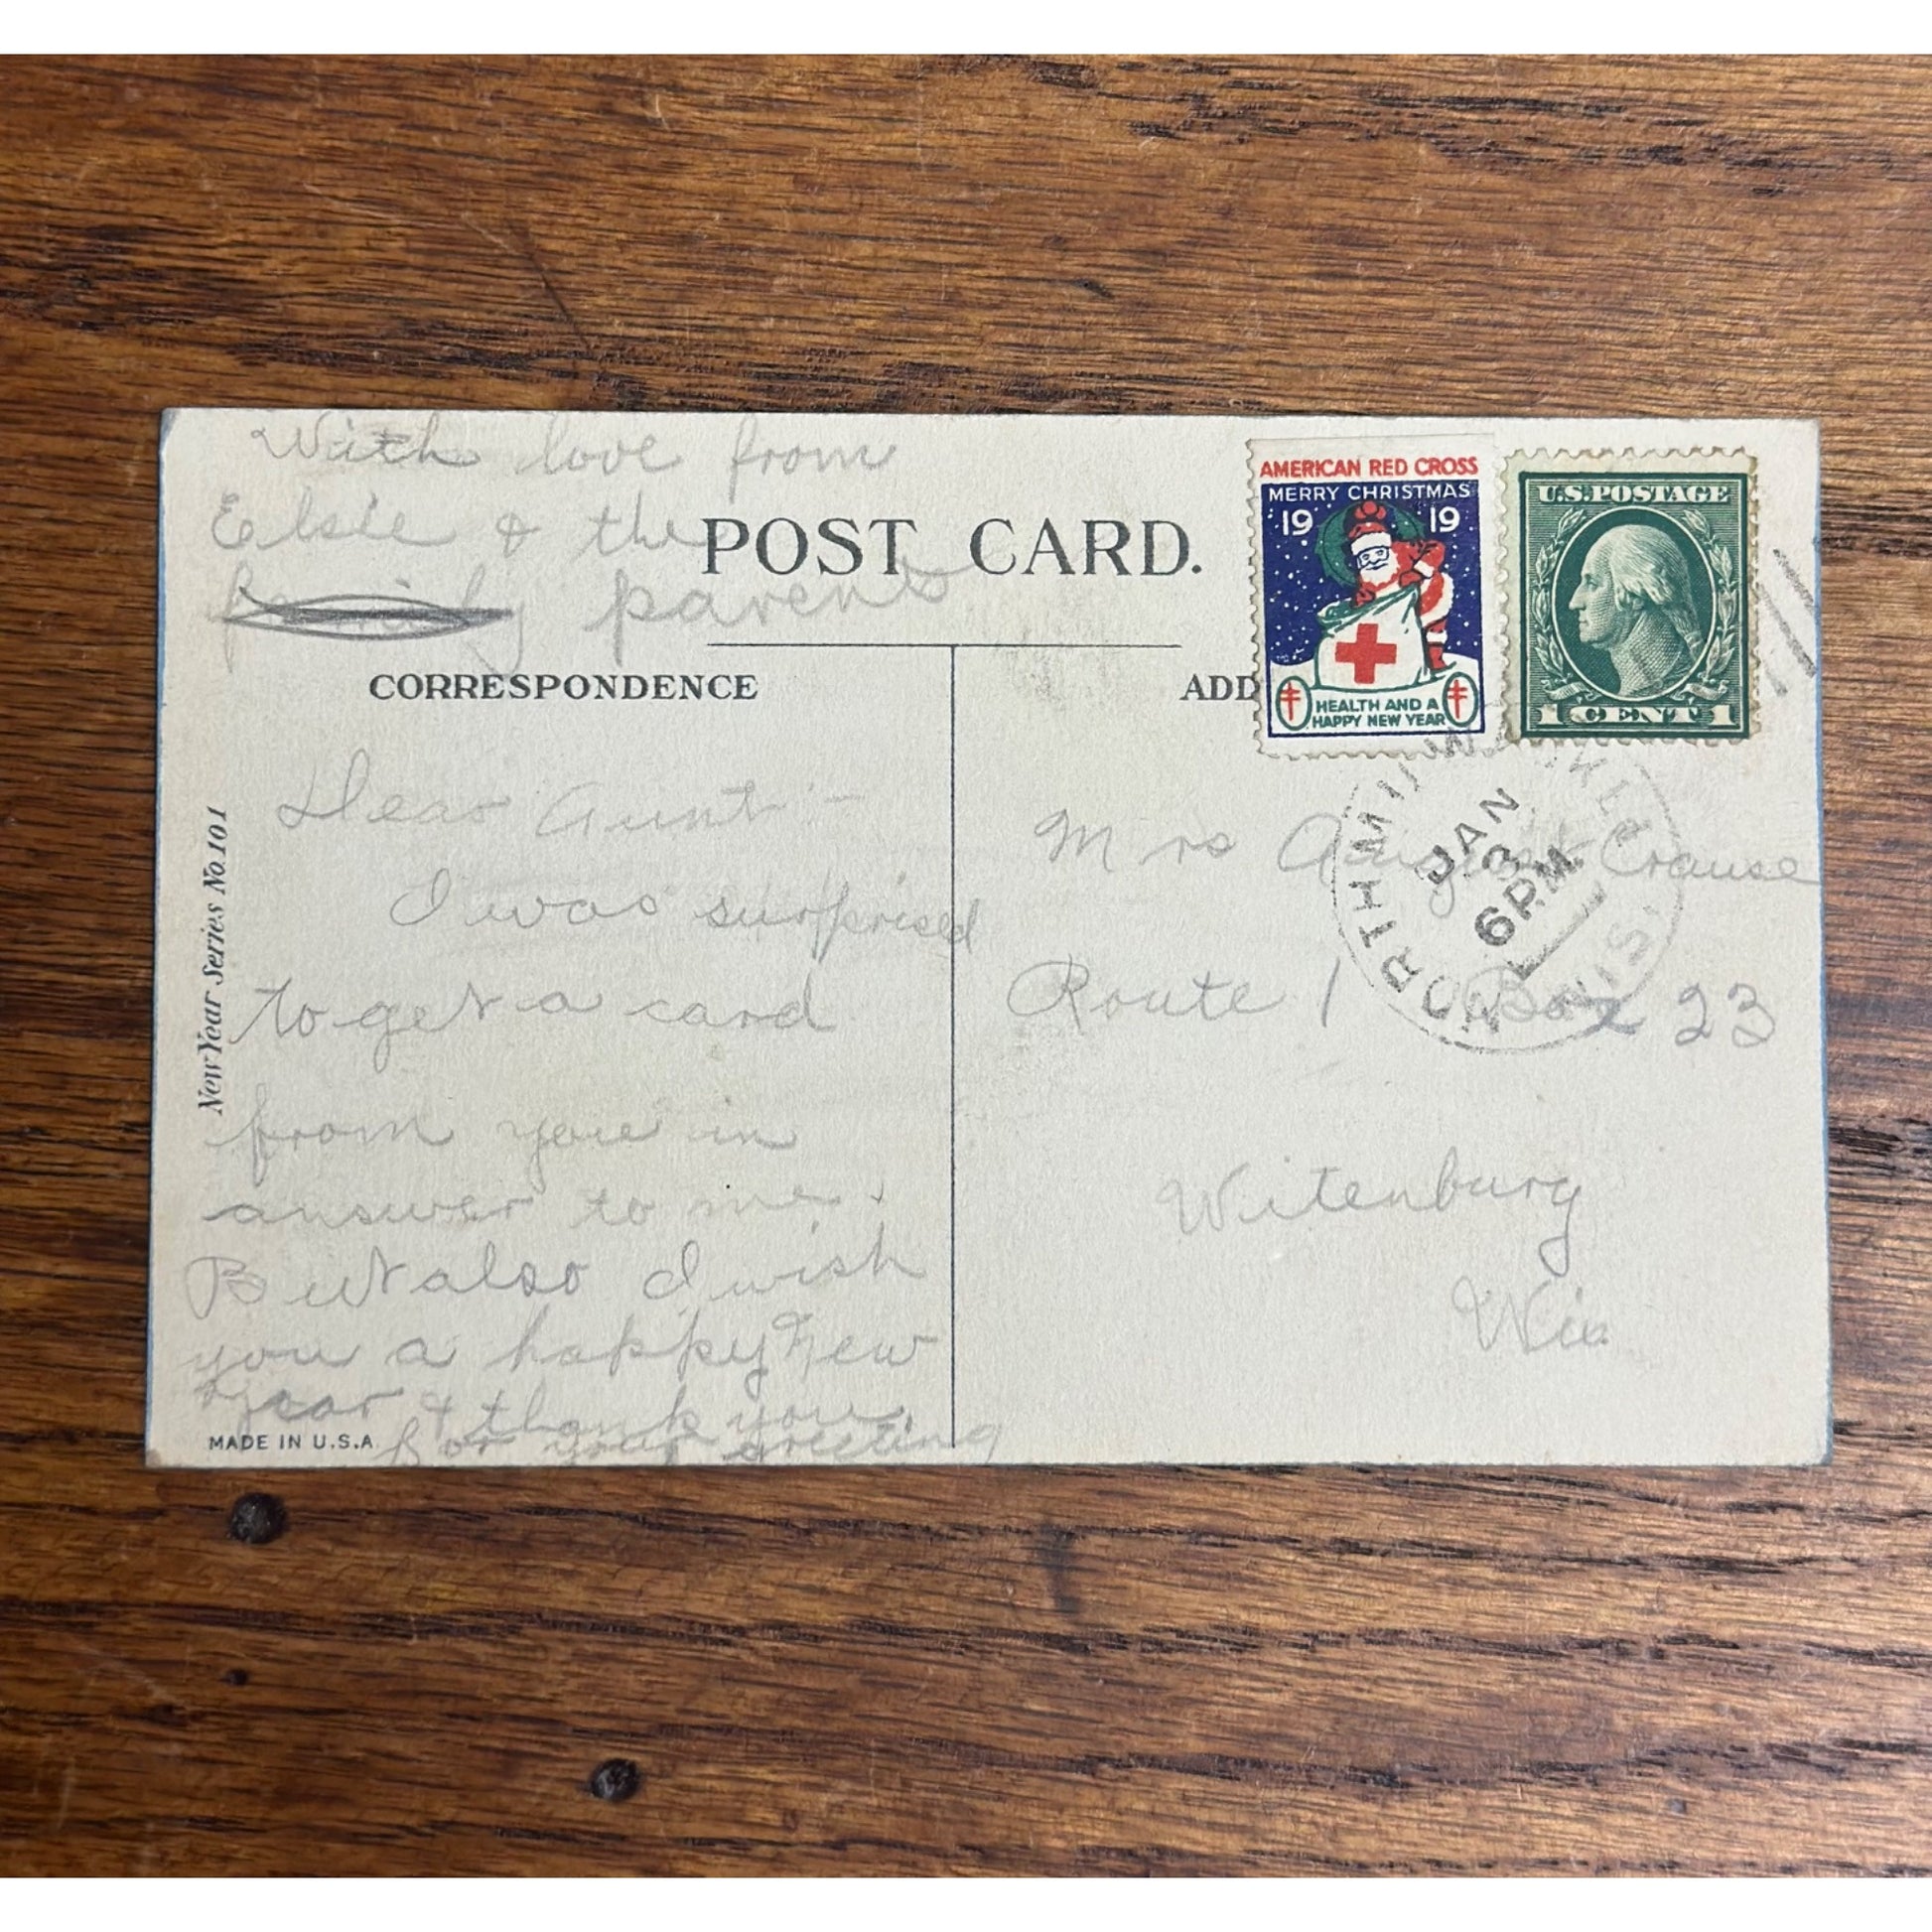 With love from
Elsie & the
family parents
POST CARD.
CORRESPONDENCE
ADD
AMERICAN RED CROSS
MERRY CHRISTMAS
19 19
HEALTH AND A
HAPPY NEW YEAR
U.S. POSTAGE
1 CENT 1
New Year Series No. 101
Dear Aunt:-
I was surprised
to get a card
from you in
answer to me.
But also I wish
you a happy New
Year & thank you
for your greeting
MADE IN U.S.A.
NORTH MILWAUKEE
WIS.
JAN
3
6 PM
Mrs August Crause
Route 1 Box 23
Witenburg
Wis.